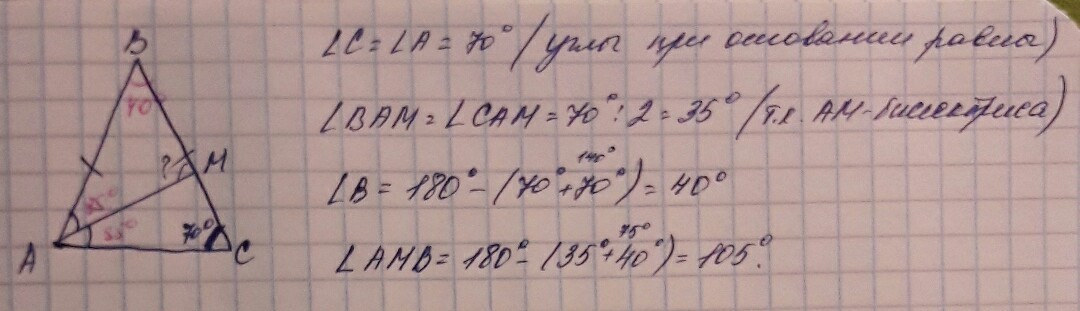 B
40°
∠C = ∠A = 70° (углы при основании равны)
∠BAM = ∠CAM = 70° : 2 = 35° (т.к. AM - биссектриса)
? M
140°
∠B = 180° - (70° + 70°) = 40°
35°
35°
70°
A
C
75°
∠AMB = 180° - (35° + 40°) = 105°.